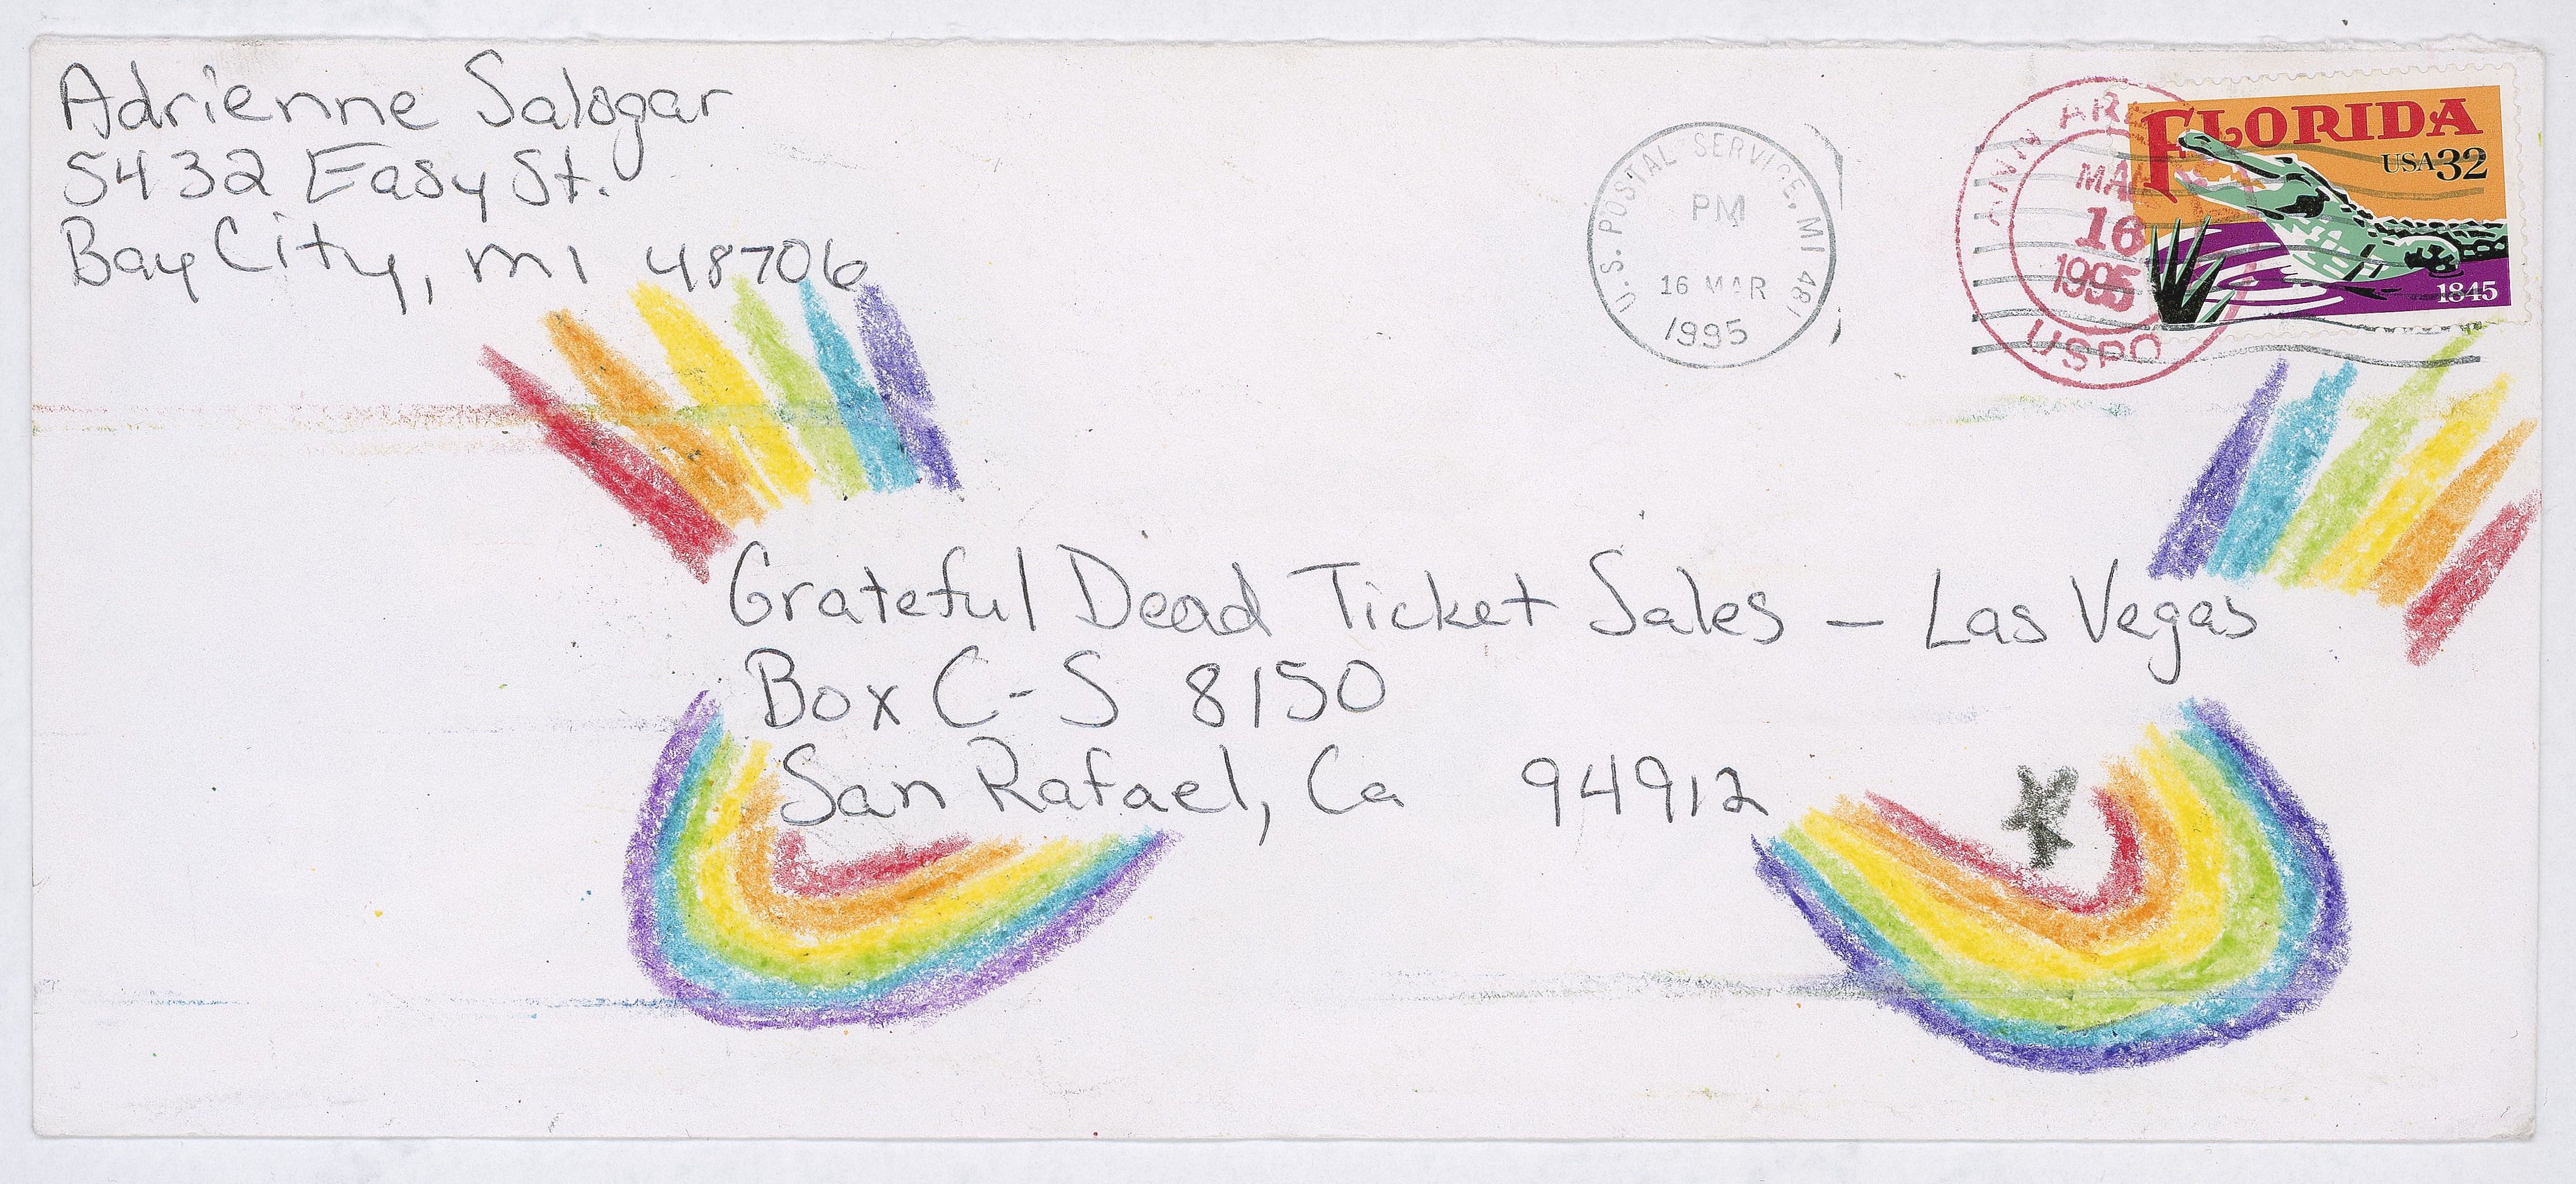 Adrienne Salogar
5432 Easy St.
Bay City, MI 48706
U.S. POSTAL SERVICE, MI 481
PM
16 MAR
1995
ANN AR
MA
16
1995
USPO
FLORIDA
USA 32
1845
Grateful Dead Ticket Sales — Las Vegas
Box C-S 8150
San Rafael, Ca 94912